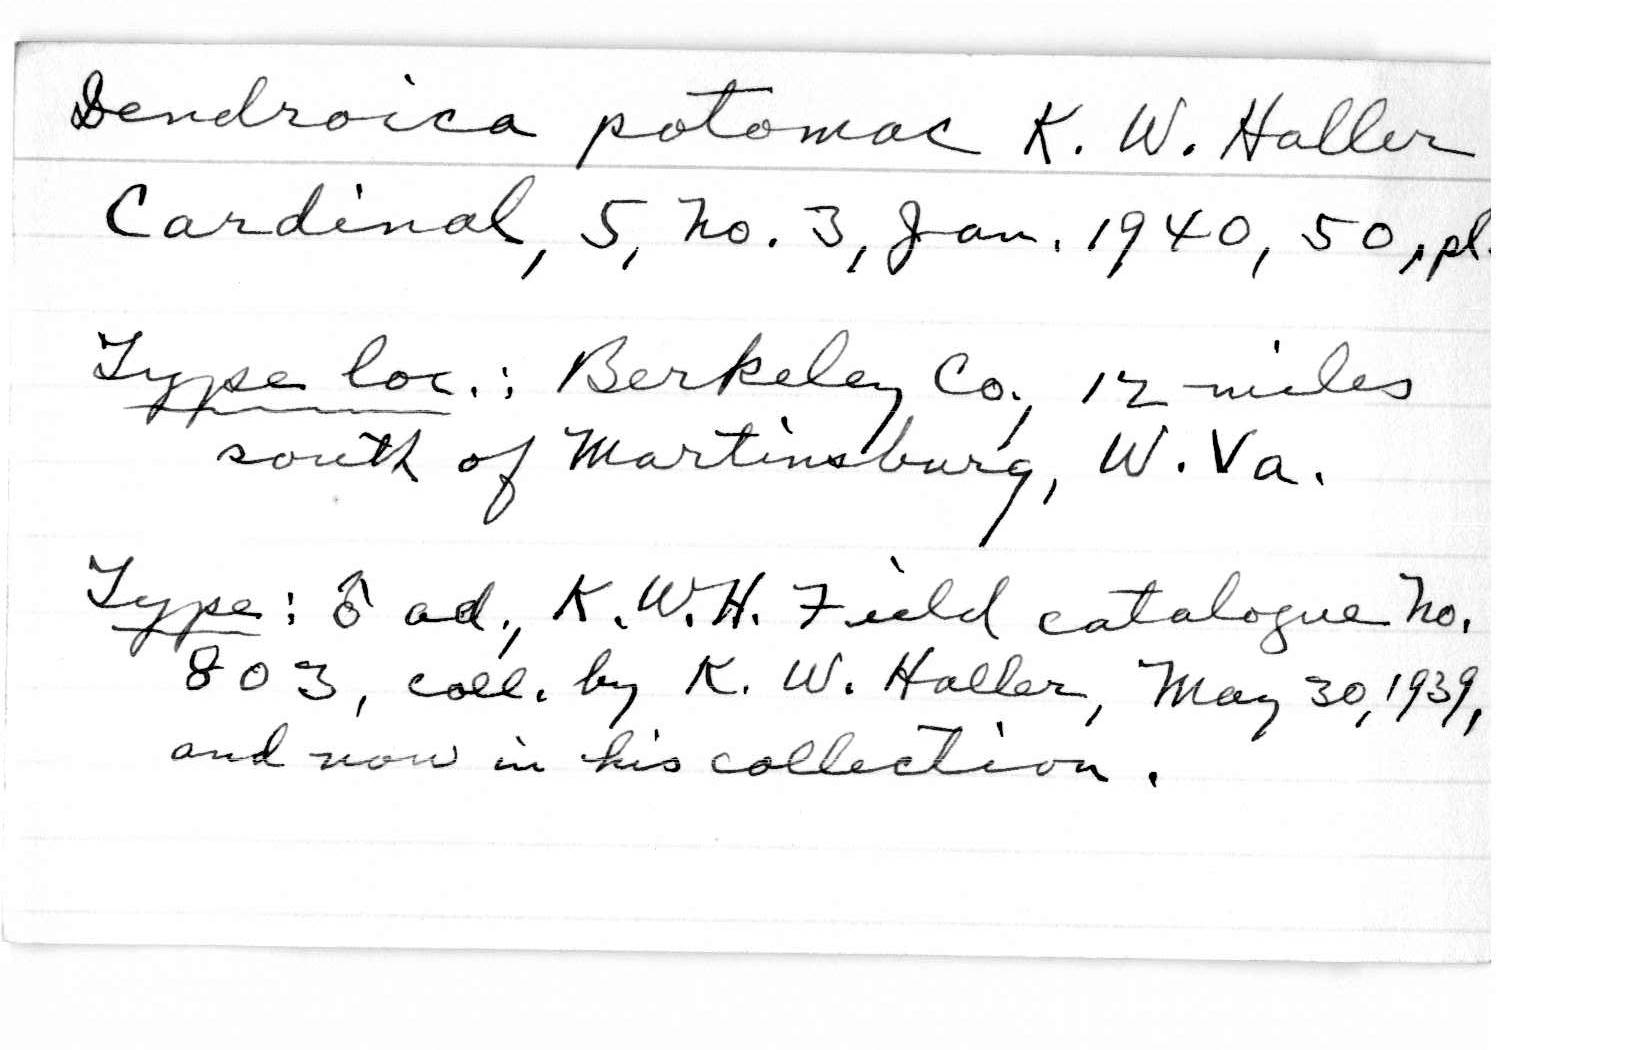 Dendroica potomac K. W. Haller
Cardinal, 5, no. 3, Jan. 1940, 50, pl.
Type loc.: Berkeley Co., 12 miles
south of Martinsburg, W. Va.
Type: ♂ ad., K.W.H. Field catalogue no.
803, coll. by K. W. Haller, May 30, 1939,
and now in his collection.